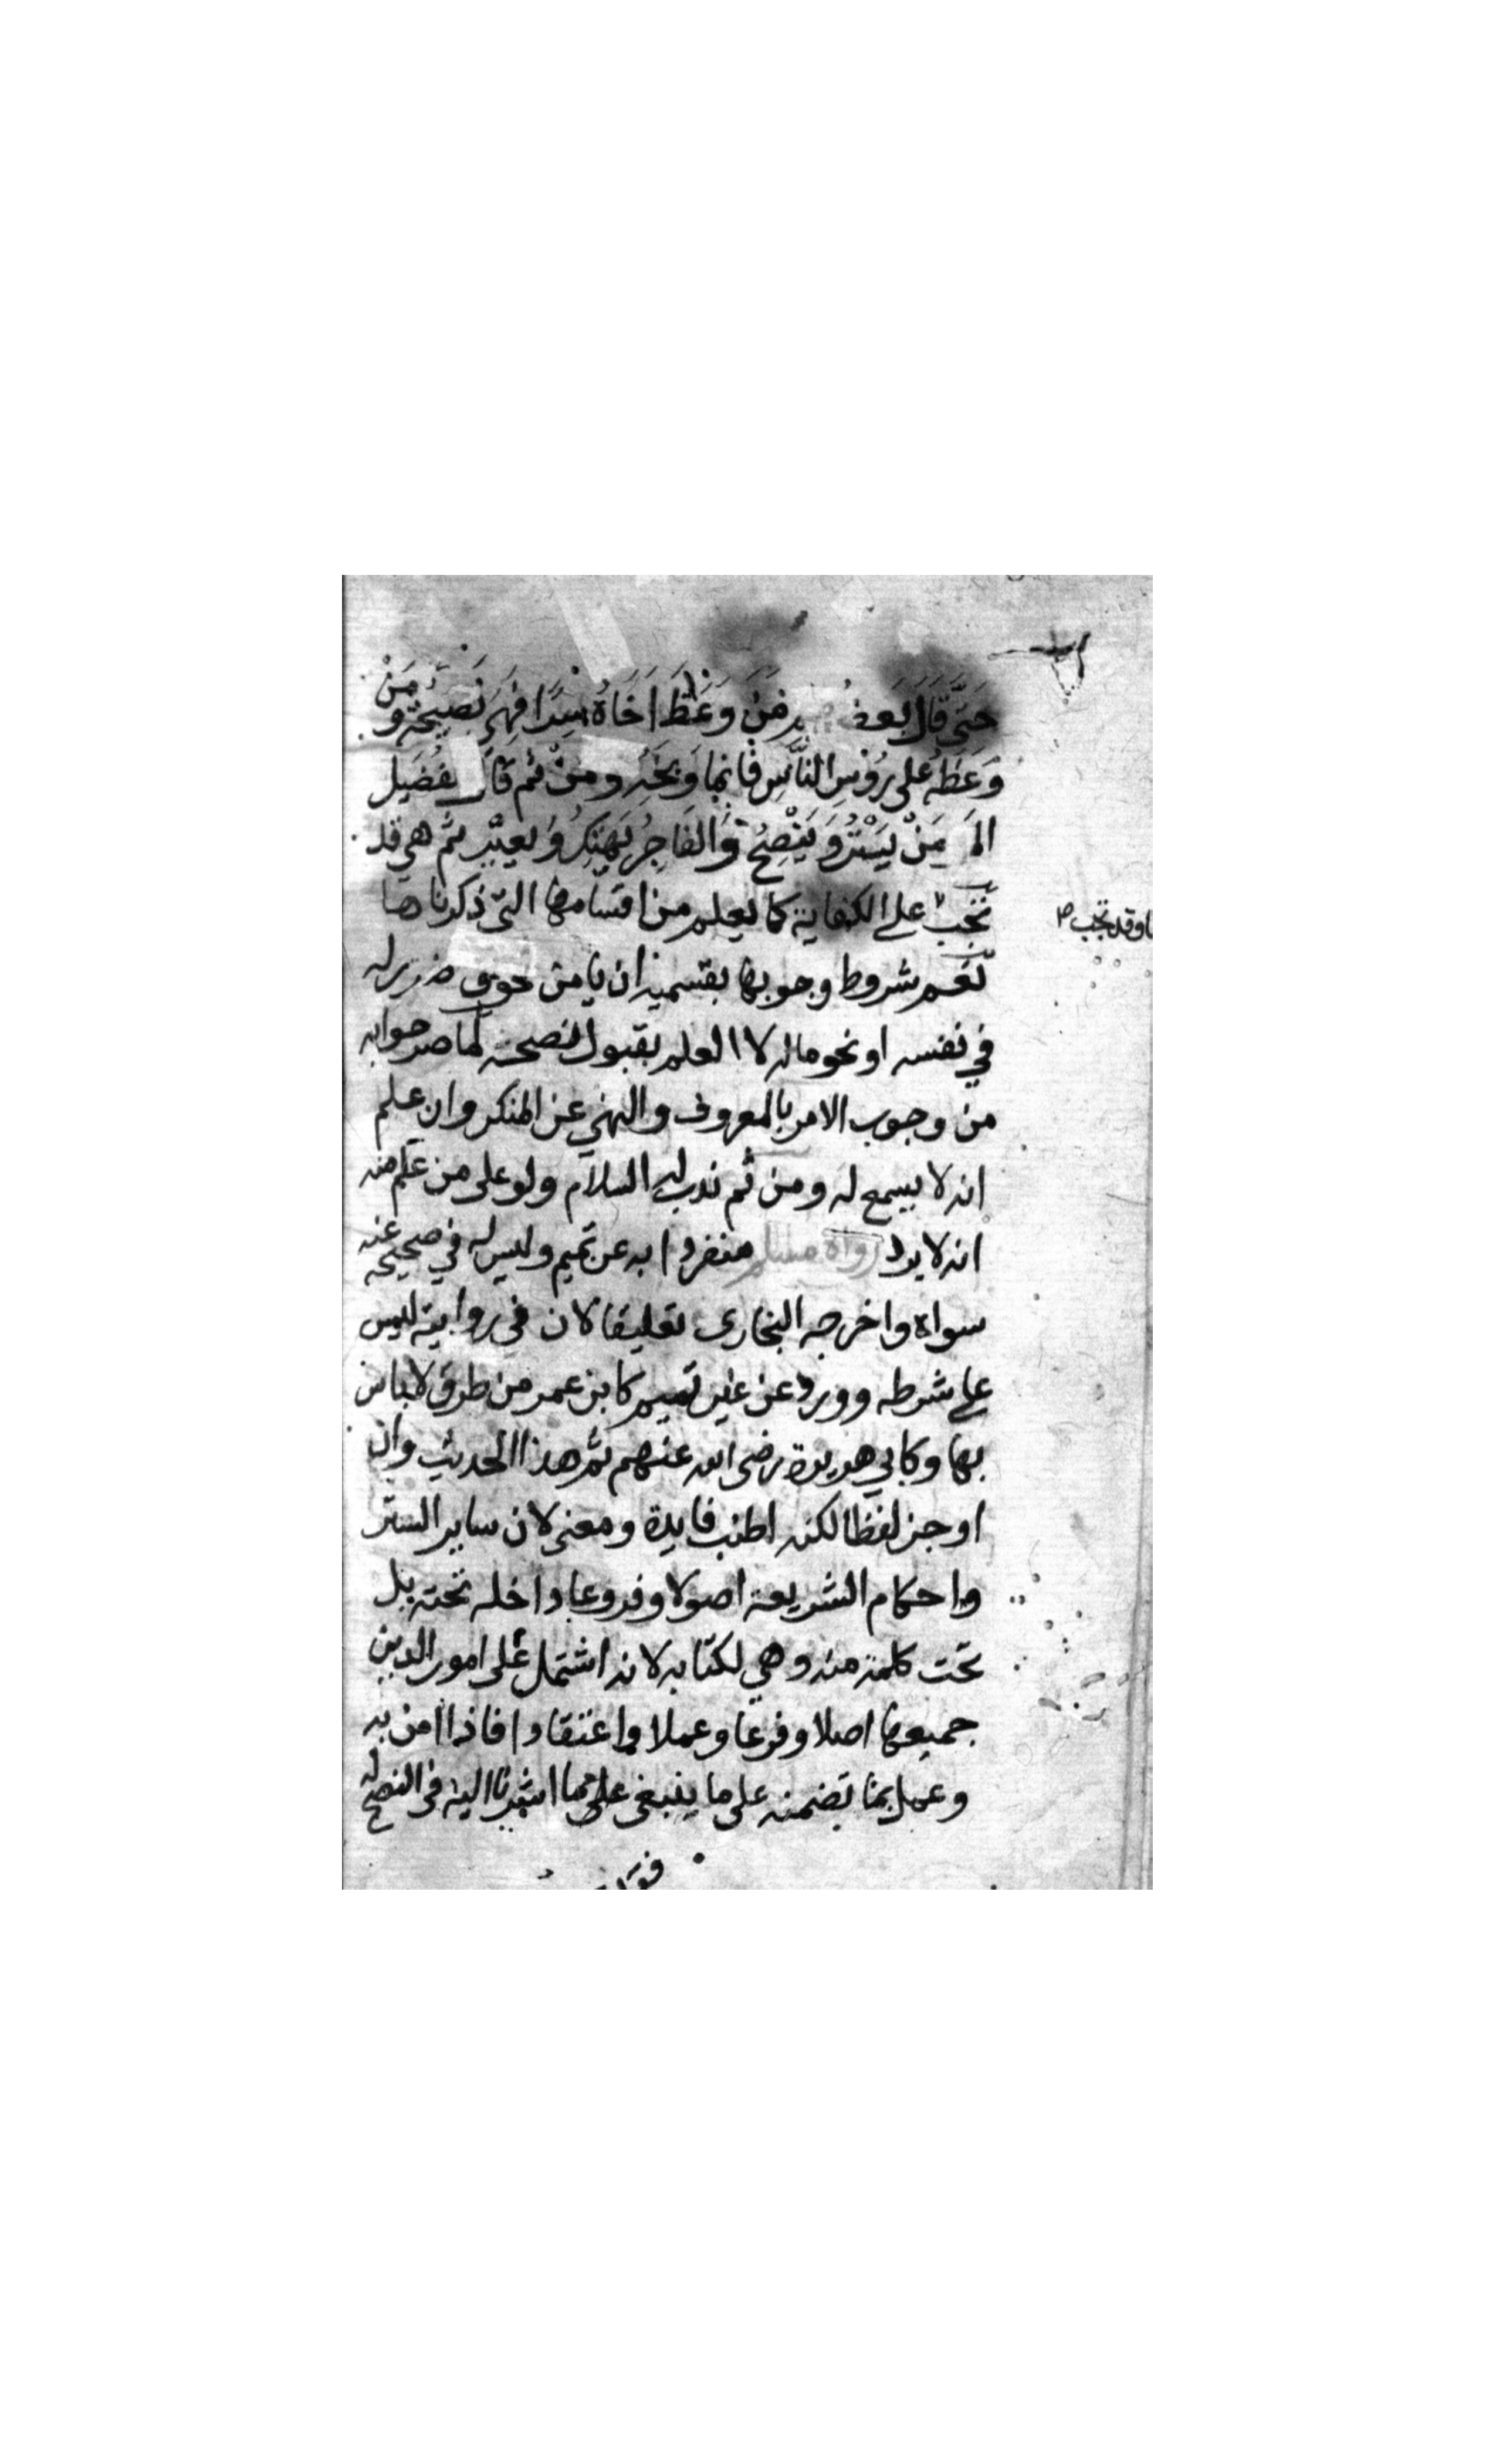 حَتَّى قَالَ بَعضُ فَمَنْ وَعَظَ اَخَاهُ سِرًّا فَهِىَ نَصِيْحَة وَمَنْ
وَعَظَهُ عَلى رُؤُسِ النَّاسِ فَانما وَبخه ومن ثم قَالَ لفُضَيل
المَ مَنْ يَسْتُرُ وَ يَنْصِحُ وَالفَاجِرُ يَهْتِكُ وَ يعيّر ثم هى قد
تجب على الكفاية كما يعلم من اقسامها التى ذكرناها
او قد تجب ص
نعم شروط وجوبها بقسميه ان يامن ضرر له
في نفسه او نحو ماله لا العلم بقبول نصحه لما صرحوا به
من وجوب الامر بالمعروف والنهي عن المنكر وان علم
انه لا يسمع له ومن ثم ندب له السلام ولو على من علم منه
انه لا يرد رواه مسلم منفردا به عن تميم وليس له في صحيحه عنه
سواه واخرجه البخارى تعليقا لان فى روايته ليس
على شرطه وورد عن غير تميم كابن عمر من طرق لا باس
بها وكابي هريرة رضى الله عنهم ثم هذا الحديث وان
اوجز لفظا لكنه اطنب فايدة ومعنى لان ساير الستر
واحكام الشريعة اصولا وفروعا داخله تحته بل
تحت كلمة منه وهي لكتابه لانه اشتمل على امور الدين
جميعها اصلا وفرعا وعملا واعتقادا فاذا امن به
وعمل بما تضمنه على ما ينبغى على مما اشرنا اليه فى النصح له